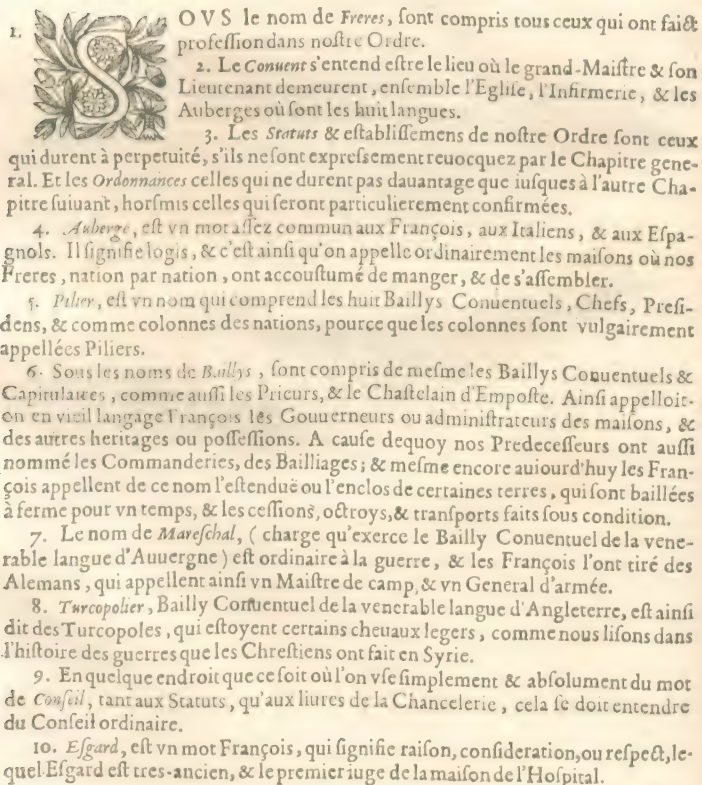 1. SOVS le nom de Freres, ſont compris tous ceux qui ont faict
profeſſion dans noſtre Ordre.
2. Le Conuent s'entend eſtre le lieu où le grand-Maiſtre & ſon
Lieutenant demeurent, enſemble l'Egliſe, l'Infirmerie, & les
Auberges où ſont les huit langues.
3. Les Statuts & eſtabliſſemens de noſtre Ordre ſont ceux
qui durent à perpetuité, s'ils ne ſont expreſsement reuocquez par le Chapitre gene-
ral. Et les Ordonnances celles qui ne durent pas dauantage que iuſques à l'autre Cha-
pitre ſuiuant, horſmis celles qui ſeront particulierement confirmées.
4. Auberge, eſt vn mot aſſez commun aux François, aux Italiens, & aux Eſpa-
gnols. Il ſignifie logis, & c'eſt ainſi qu'on appelle ordinairement les maiſons où nos
Freres, nation par nation, ont accouſtumé de manger, & de s'aſſembler.
5. Pilier, eſt vn nom qui comprend les huit Baillys Conuentuels, Chefs, Preſi-
dens, & comme colonnes des nations, pource que les colonnes ſont vulgairement
appellées Piliers.
6. Sous les noms de Baillys, ſont compris de meſme les Baillys Conuentuels &
Capitulaires, comme auſſi les Prieurs, & le Chaſtelain d'Empoſte. Ainſi appelloit-
on en vieil langage François les Gouuerneurs ou adminiſtrateurs des maiſons, &
des autres heritages ou poſſeſſions. A cauſe dequoy nos Predeceſſeurs ont auſſi
nommé les Commanderies, des Bailliages; & meſme encore auiourd'huy les Fran-
çois appellent de ce nom l'eſtenduë ou l'enclos de certaines terres, qui ſont baillées
à ferme pour vn temps, & les ceſſions, octroys, & tranſports faits ſous condition.
7. Le nom de Mareſchal, (charge qu'exerce le Bailly Conuentuel de la vene-
rable langue d'Auuergne) eſt ordinaire à la guerre, & les François l'ont tiré des
Alemans, qui appellent ainſi vn Maiſtre de camp, & vn General d'armée.
8. Turcopolier, Bailly Conuentuel de la venerable langue d'Angleterre, eſt ainſi
dit des Turcopoles, qui eſtoyent certains cheuaux legers, comme nous liſons dans
l'hiſtoire des guerres que les Chreſtiens ont fait en Syrie.
9. En quelque endroit que ce ſoit où l'on vſe ſimplement & abſolument du mot
de Conſeil, tant aux Statuts, qu'aux liures de la Chancelerie, cela ſe doit entendre
du Conſeil ordinaire.
10. Eſgard, eſt vn mot François, qui ſignifie raiſon, conſideration, ou reſpect, le-
quel Eſgard eſt tres-ancien, & le premier iuge de la maiſon de l'Hoſpital.